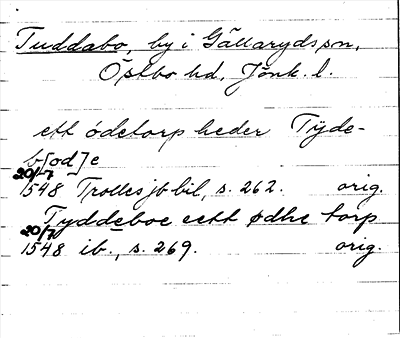 Tuddabo, by i Gällaryds sn,
Östbo hd, Jönk. l.
ett ödetorp heder Tÿde-
b[od]e
20/7
1548 Trolles jb bil, s. 262. orig.
Tyddeboe eett ødhe torp
20/7
1548 ib., s. 269. orig.